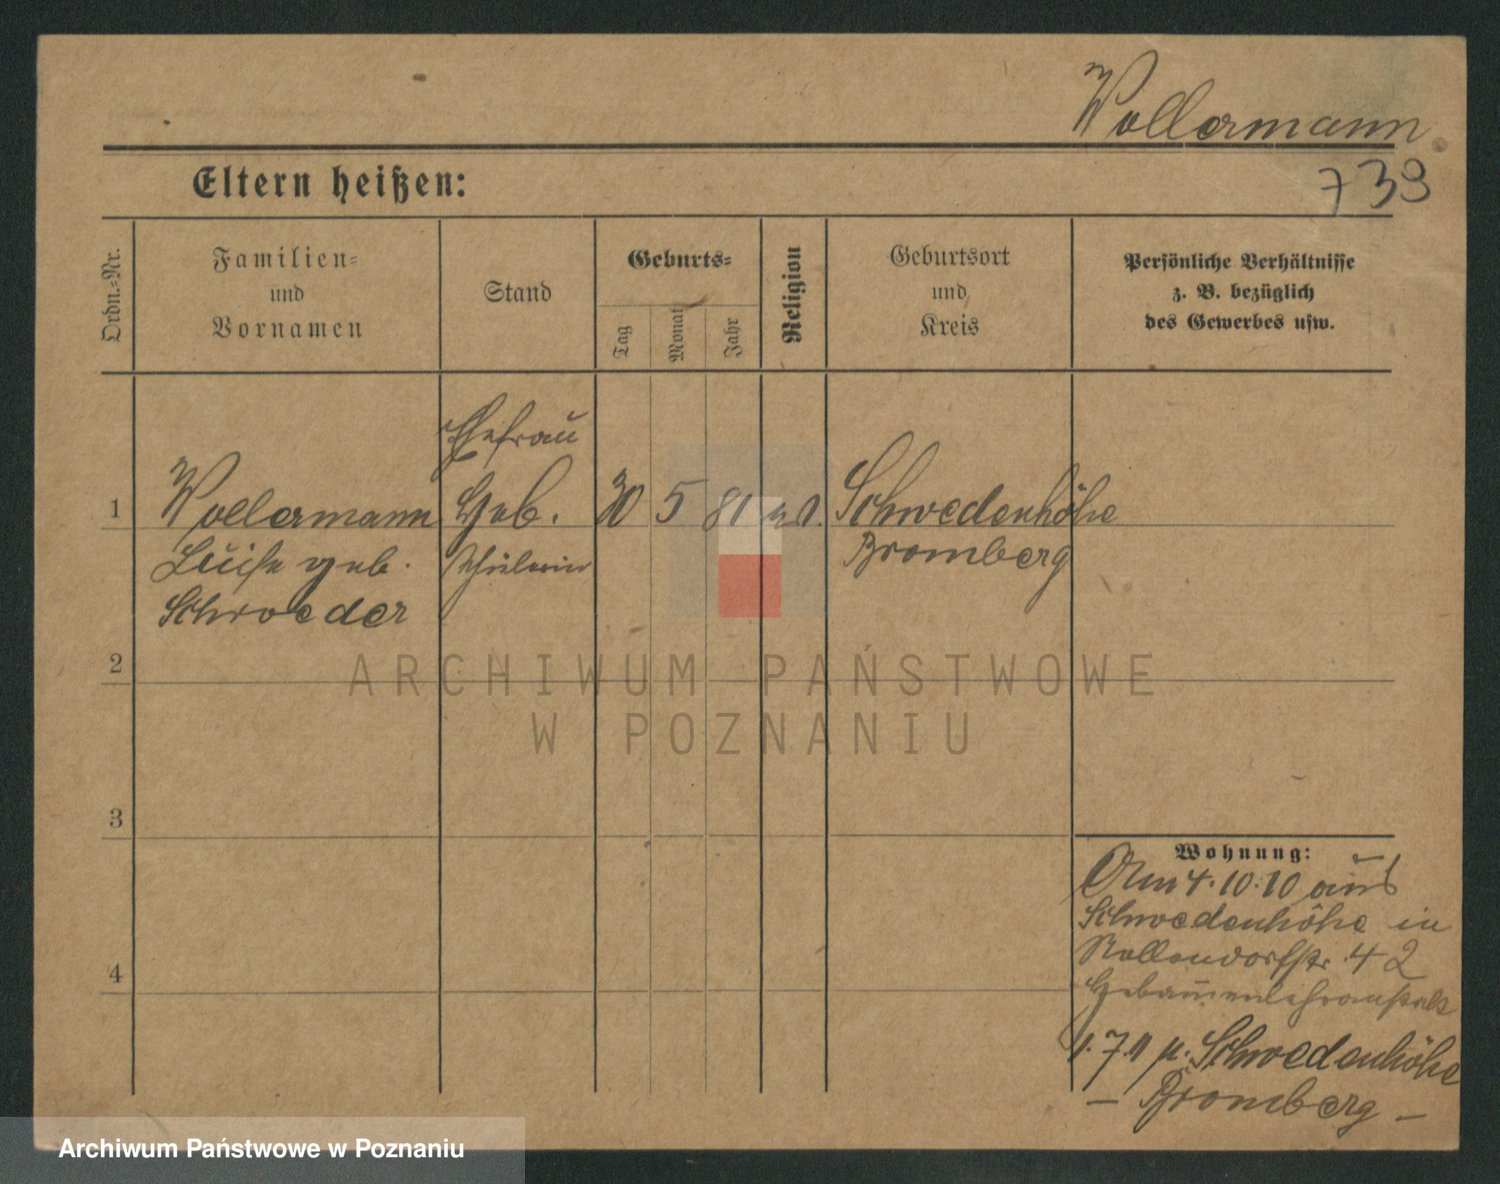 Wollermann
739
Eltern heißen:
Ordn.-Nr.
Familien-
und
Vornamen
Stand
Geburts-
Tag
Monat
Jahr
Religion
Geburtsort
und
Kreis
Persönliche Verhältnisse
z. B. bezüglich
des Gewerbes usw.
1
Wollermann
Luise geb.
Schroeder
Ehefrau
Heb.
schülerin
30
5
81
Schwedenhöhe
Bromberg
2
3
4
Wohnung:
Am 4.10.10 aus
Schwedenhöhe in
Nollendorfstr. 42
Hebammenlehranstalt
1.7.11 n. Schwedenhöhe
– Bromberg –
ARCHIWUM PAŃSTWOWE
W POZNANIU
Archiwum Państwowe w Poznaniu